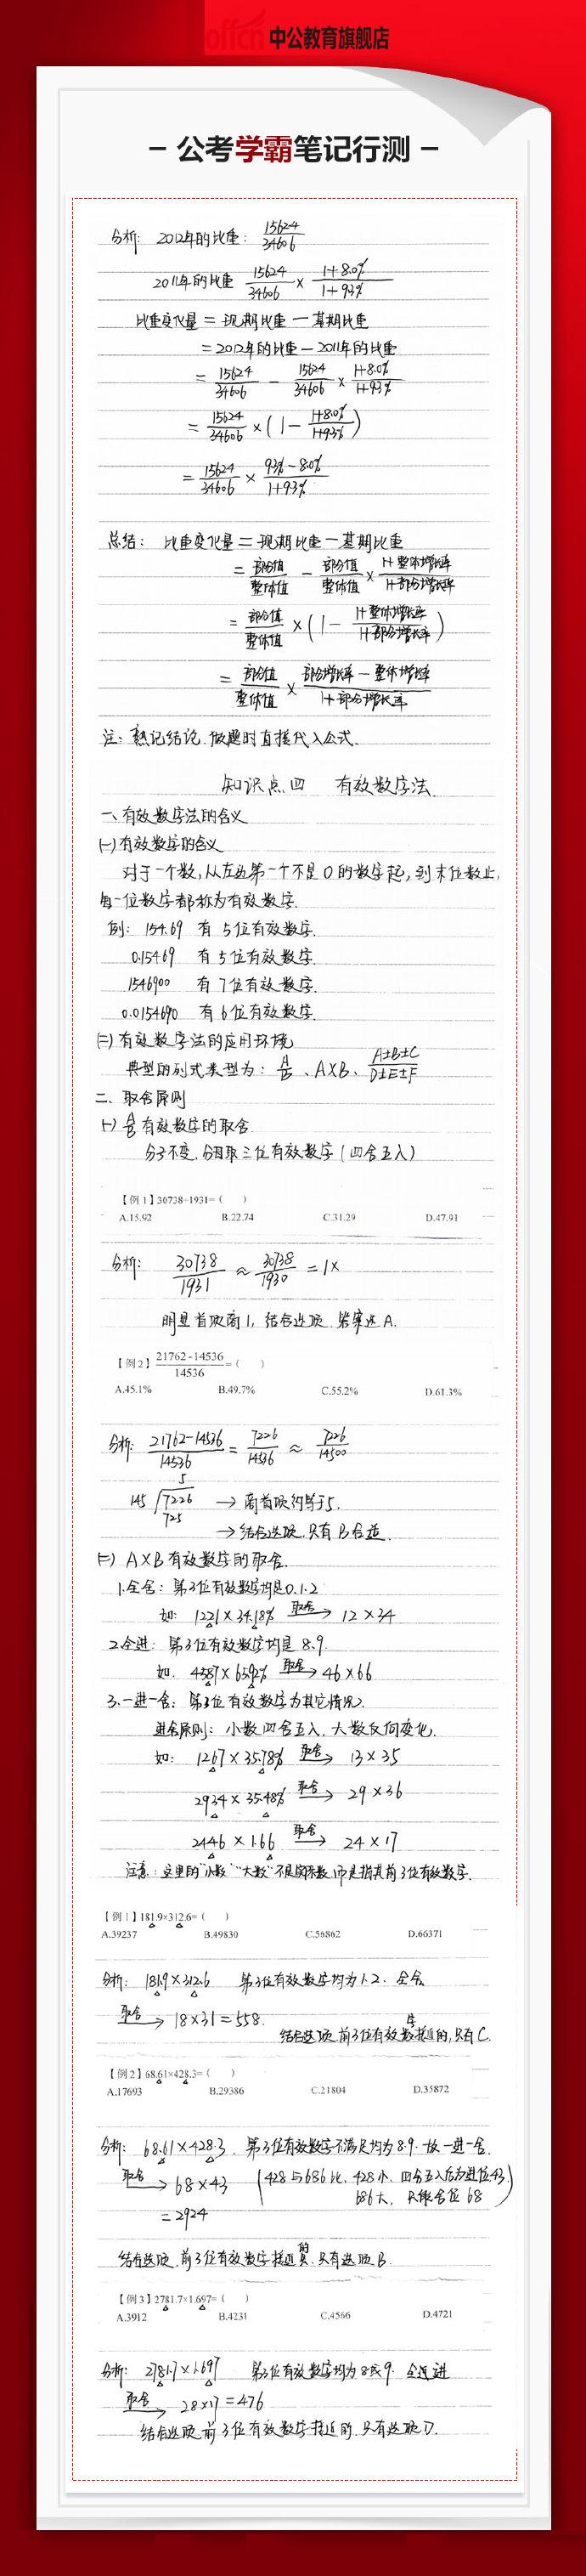 offcn 中公教育旗舰店
- 公考学霸笔记行测 -
分析: 2012年的比重: 15624/34606
2011年的比重 15624/34606 × 1+8.0%/1+9.3%
比重变化量 = 现期比重 - 基期比重
= 2012年的比重 - 2011年的比重
= 15624/34606 - 15624/34606 × 1+8.0%/1+9.3%
= 15624/34606 × (1 - 1+8.0%/1+9.3%)
= 15624/34606 × 9.3%-8.0%/1+9.3%
总结: 比重变化量 = 现期比重 - 基期比重
= 部分值/整体值 - 部分值/整体值 × 1+整体增长率/1+部分增长率
= 部分值/整体值 × (1 - 1+整体增长率/1+部分增长率)
= 部分值/整体值 × 部分增长率-整体增长率/1+部分增长率
注: 熟记结论,做题时直接代入公式.
知识点四 有效数字法
一、有效数字法的含义
(一)有效数字的含义
对于一个数,从左边第一个不是0的数字起,到末位数止,
每一位数字都称为有效数字.
例: 154.69 有5位有效数字.
0.15469 有5位有效数字.
1546900 有7位有效数字.
0.0154690 有6位有效数字.
(二)有效数字法的应用环境
典型的列式类型为: A/B、A×B、A±B±C/D±E±F
二、取舍原则
(一) A/B 有效数字的取舍
分子不变,分母取三位有效数字(四舍五入)
【例1】30738÷1931=( )
A.15.92 B.22.74 C.31.29 D.47.91
分析: 30738/1931 ≈ 30738/1930 = 1×
明显首项商1,结合选项,答案选A.
【例2】21762-14536/14536=( )
A.45.1% B.49.7% C.55.2% D.61.3%
分析: 21762-14536/14536 = 7226/14536 ≈ 7226/14500
5
145 7226 → 商首项约等于5.
725
→ 结合选项,只有B合适
(二) A×B有效数字的取舍.
1.全舍: 第3位有效数字均是0.1.2
如: 1221×34.18% 取舍→ 12×34
2.全进: 第3位有效数字均是8.9.
如: 4587×65.92% 取舍→ 46×66
3.一进一舍: 第3位有效数字为其它情况.
进舍原则: 小数四舍五入,大数反向变化.
如: 1267×35.78% 取舍→ 13×35
2934×35.48% 取舍→ 29×36
2446×1.66 取舍→ 24×17
注意: 这里的“小数”“大数”不是实际数,而是指其前3位有效数字.
【例1】181.9×312.6=( )
A.39237 B.49830 C.56862 D.66371
分析: 181.9×312.6 第3位有效数字均为1.2. 全舍
取舍→ 18×31=558.
结合选项,前3位有效数字接近的,只有C.
【例2】68.61×428.3=( )
A.17693 B.29386 C.21804 D.35872
分析: 68.61×428.3, 第3位有效数字不满足均为8.9. 故一进一舍.
取舍→ 68×43 (428与686比,428小,四舍五入后为进位43,
686大, 只能舍位68)
=2924
结合选项,前3位有效数字接近的,只有选项B.
【例3】2781.7×1.697=( )
A.3912 B.4231 C.4566 D.4721
分析: 2781.7×1.697 第3位有效数字均为8或9. 全进
取舍→ 28×17=476
结合选项,前3位有效数字接近的,只有选项D.